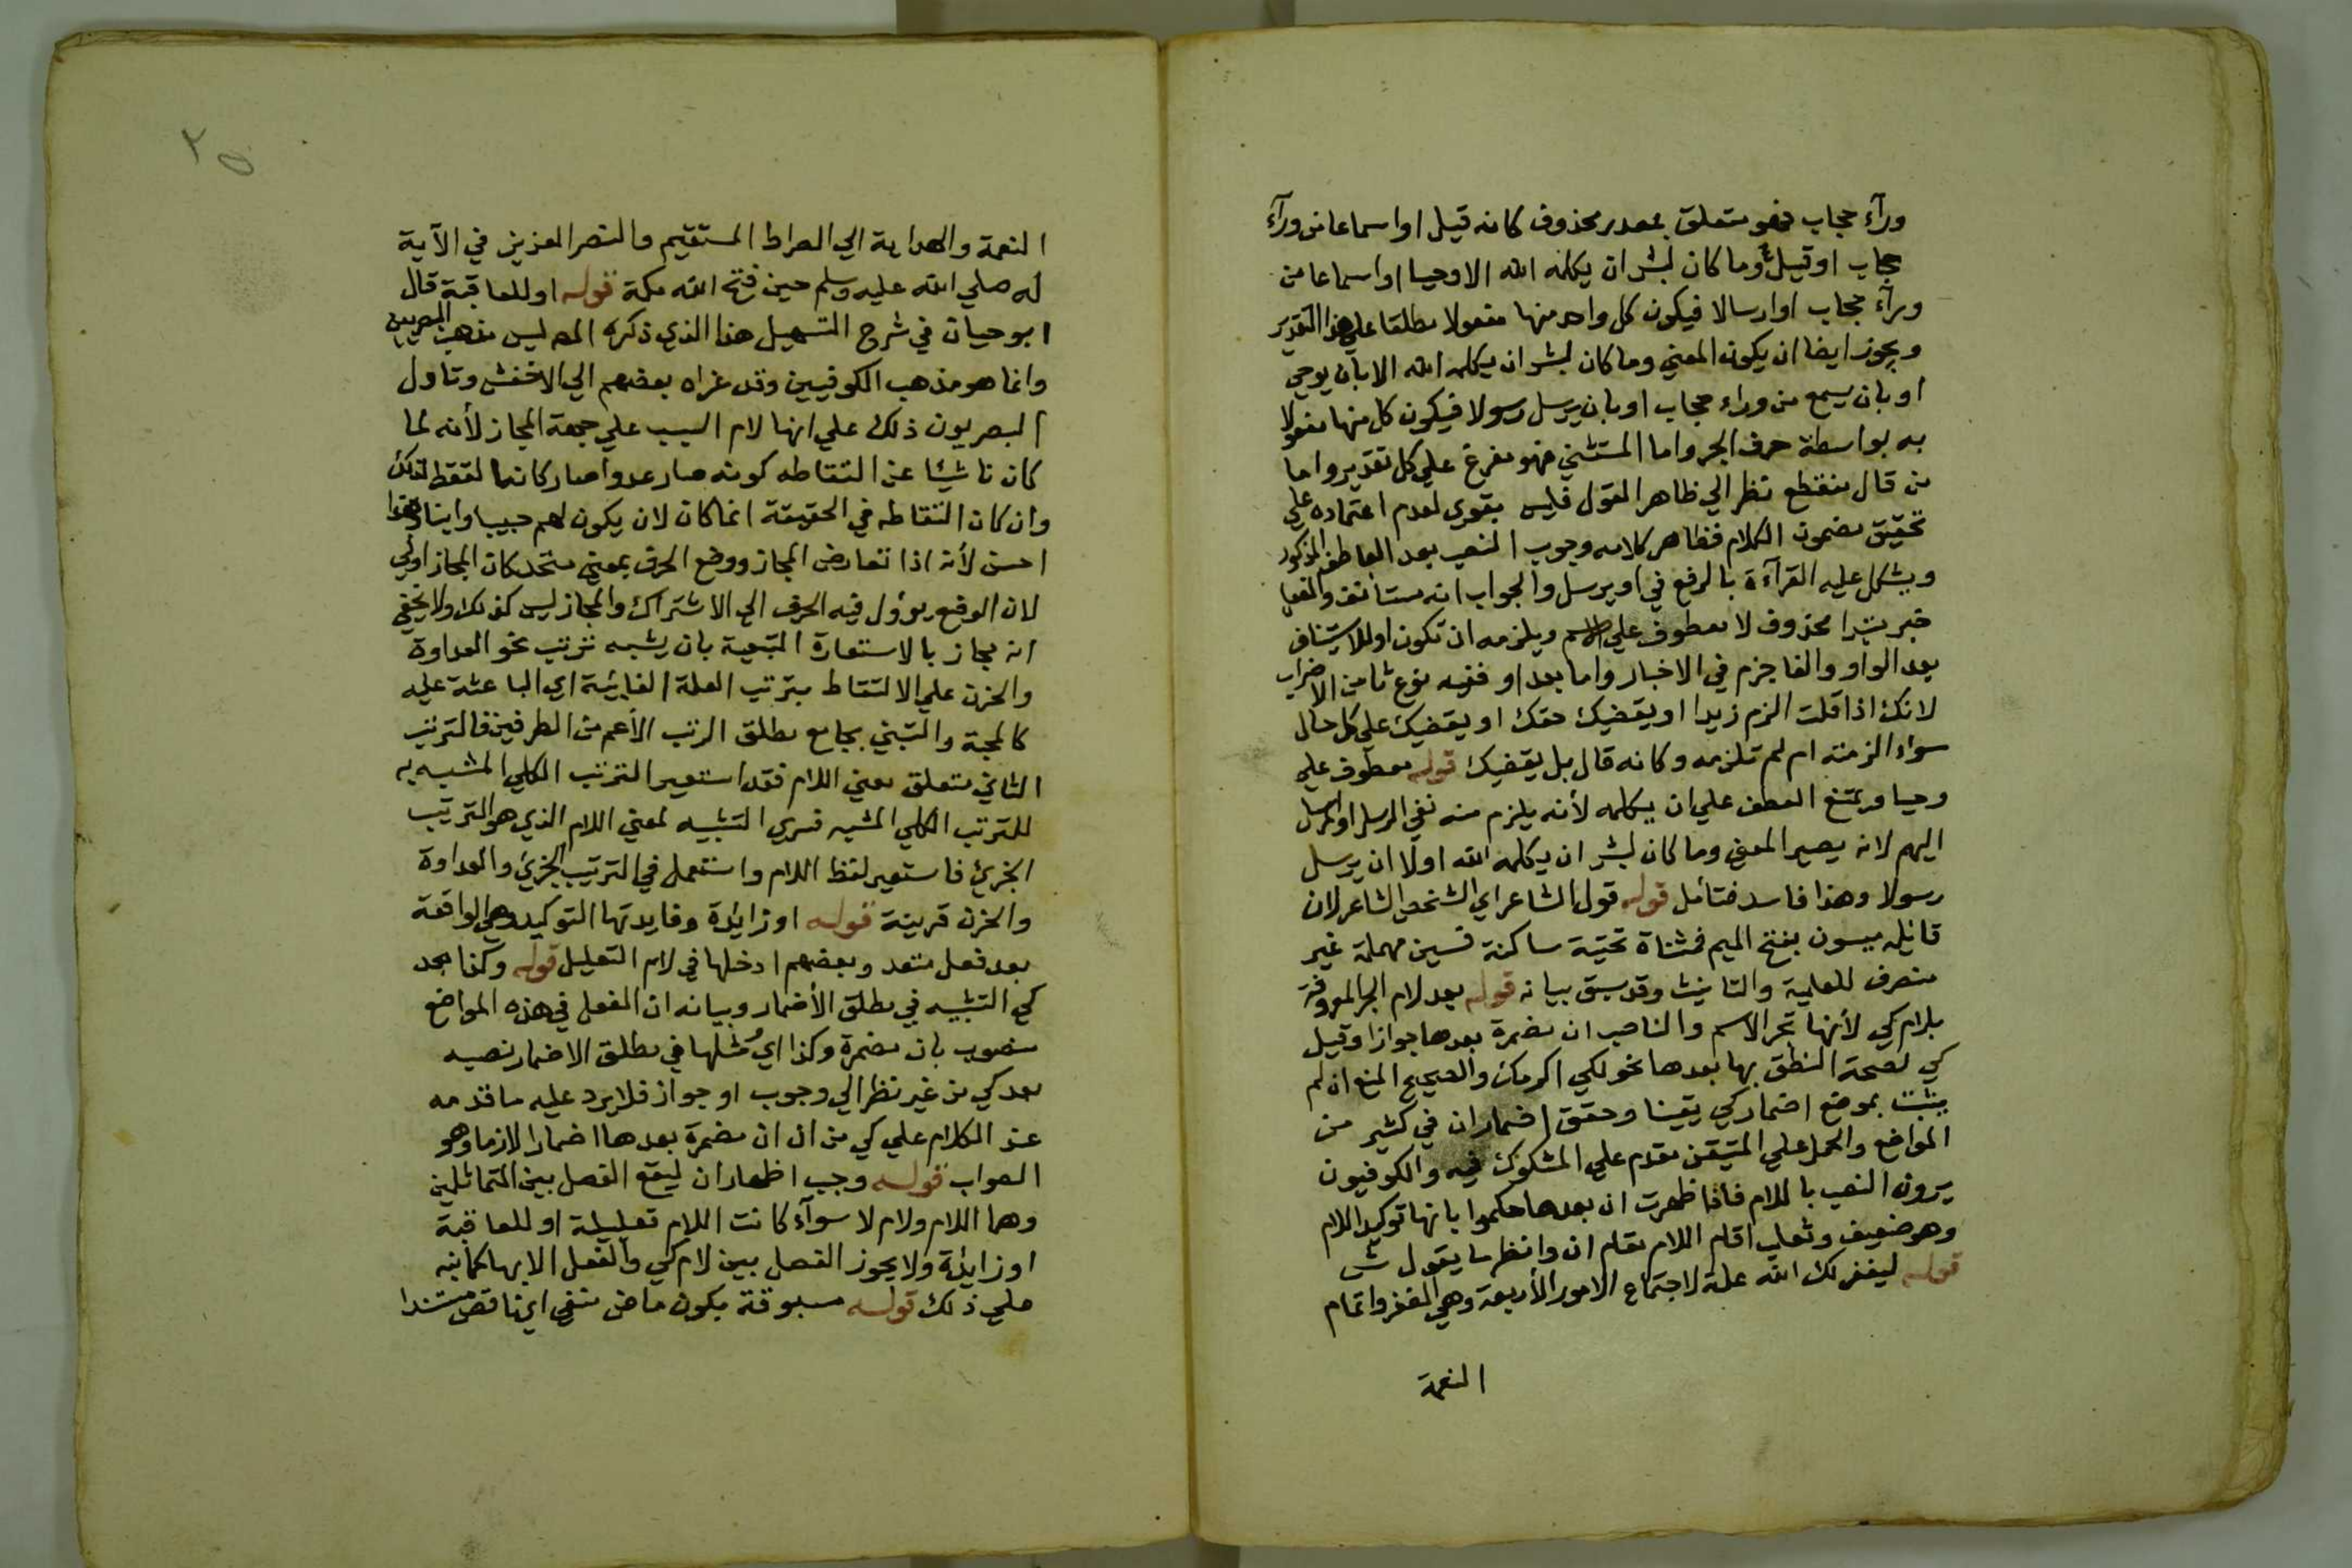 ورآء حجاب فهو متعلق بمصدر محذوف كانه قيل او اسماعا من ورآء
حجاب او قيل وما كان لبشر ان يكلمه الله الا وحيا او اسماعا من
ورآء حجاب او ارسالا فيكون كل واحد منها مفعولا مطلقا علي هذا التقدير
ويجوز ايضا ان يكون المعني وما كان لبشر ان يكلمه الله الا بان يوحي
او بان يسمع من وراء حجاب او بان يرسل رسولا فيكون كل منها مفعولا
به بواسطة حرف الجر واما المستثني فهو مفرغ علي كل تقدير واما
من قال منقطع نظر الي ظاهر القول فليس بقوي لعدم اعتماده علي
تحقيق مضمون الكلام فظاهر كلامه وجوب النصب بعد العاطف المذكور
ويشكل عليه القرآءة بالرفع في او يرسل والجواب انه مستانف والفعل
خبر مبتدا محذوف لا معطوف علي الاسم ويلزمه ان تكون او للاستيناف
بعد الواو والفا جزم في الاخبار واما بعد او ففيه نوع ما من الاضراب
لانك اذا قلت الزم زيدا او يقضيك حقك او يقضيك علي كل حال
سواء الزمته ام لم تلزمه وكانه قال بل يقضيك قوله معطوف علي
وحيا ويمتنع العطف علي ان يكلمه لأنه يلزم منه نفي الرسل او المرسل
اليهم لانه يصير المعني وما كان لبشر ان يكلمه الله اولا ان يرسل
رسولا وهذا فاسد فتأمل قوله قول الشاعر اي الشخص الشاعر لان
قائله ميسون بفتح الميم فمثناة تحتية ساكنة فسين مهملة غير
منصرف للعلمية والتانيث وقد سبق بيانه قوله بعد لام الجر المعروفة
بلام كي لأنها تجر الاسم والناصب ان مضمرة بعدها جوازا وقيل
كي لصحة النطق بها بعدها نحو لكي اكرمك والصحيح المنع ان لم
يثبت بموضع اضمار كي يقينا وحقق اضمار ان في كثير من
المواضع والحمل علي المتيقن مقدم علي المشكوك فيه والكوفيون
يرون النصب باللام فاذا ظهرت ان بعدها حكموا بانها توكيد اللام
وهو ضعيف وثعلب اقام اللام مقام ان وانظر ما يقول ش
قوله ليغفر لك الله علة لاجتماع الامور الأربعة وهي المغفرو اتمام
النعمة
٢٥
النعمة والهداية الي الصراط المستقيم والنصر العزيز في الآية
له صلي الله عليه وسلم حين فتح الله مكة قوله او للعاقبة قال
ابو حيان في شرح التسهيل هذا الذي ذكره المص ليس مذهب البصريين
وانما هو مذهب الكوفيين وقد عزاه بعضهم الي الاخفش وتاول
البصريون ذلك علي انها لام السبب علي جهة المجاز لأنه لما
كان ناشيًا عن التقاطه كونه صار عدوا صار كانما لتقط لذلك
وان كان التقاطه في الحقيقة انما كان لان يكون لهم حبيبا وابنا وهذا
احسن لأنه اذا تعارض المجاز ووضع الحرف بمعني متحد كان المجاز اولي
لان الوضع يؤول فيه الحرف الي الاشتراك والمجاز ليس كذلك ولا يخفي
انه مجاز بالاستعارة التبعية بان يشبه ترتب نحو العداوة
والحزن علي الالتقاط بترتب العلة الغائية اي الباعثة عليه
كالمحبة والتبني بجامع مطلق الترتب الأعم من الطرفين فالترتب
الثاني متعلق معني اللام فقد استعير الترتب الكلي المشبه به
للترتب الكلي المشبه فسري التشبيه لمعني اللام الذي هو الترتيب
الجزئي فاستعير لفظ اللام واستعمل في الترتيب الجزئي والعداوة
والحزن قرينة قوله او زايدة وفايدتها التوكيد وهي الواقعة
بعد فعل متعد وبعضهم ادخلها في لام التعليل قوله وكذا بعد
كي التشبيه في مطلق الأضمار وبيانه ان الفعل في هذه المواضع
منصوب بان مضمرة وكذا اي مثلها في مطلق الاضمار نصبه
بعد كي من غير نظر الي وجوب او جواز فلا يرد عليه ما قدمه
عند الكلام علي كي من ان ان مضمرة بعدها اضمارا لازما وهو
الصواب قوله وجب اظهار ان ليقع الفصل بين المتماثلين
وهما اللام ولام لا سوآء كانت اللام تعليلية او للعاقبة
او زايدة ولا يجوز الفصل بين لام كي والفعل الا بها كما نبه
علي ذلك قوله مسبوقة بكون ماض منفي اي ناقص مسندا